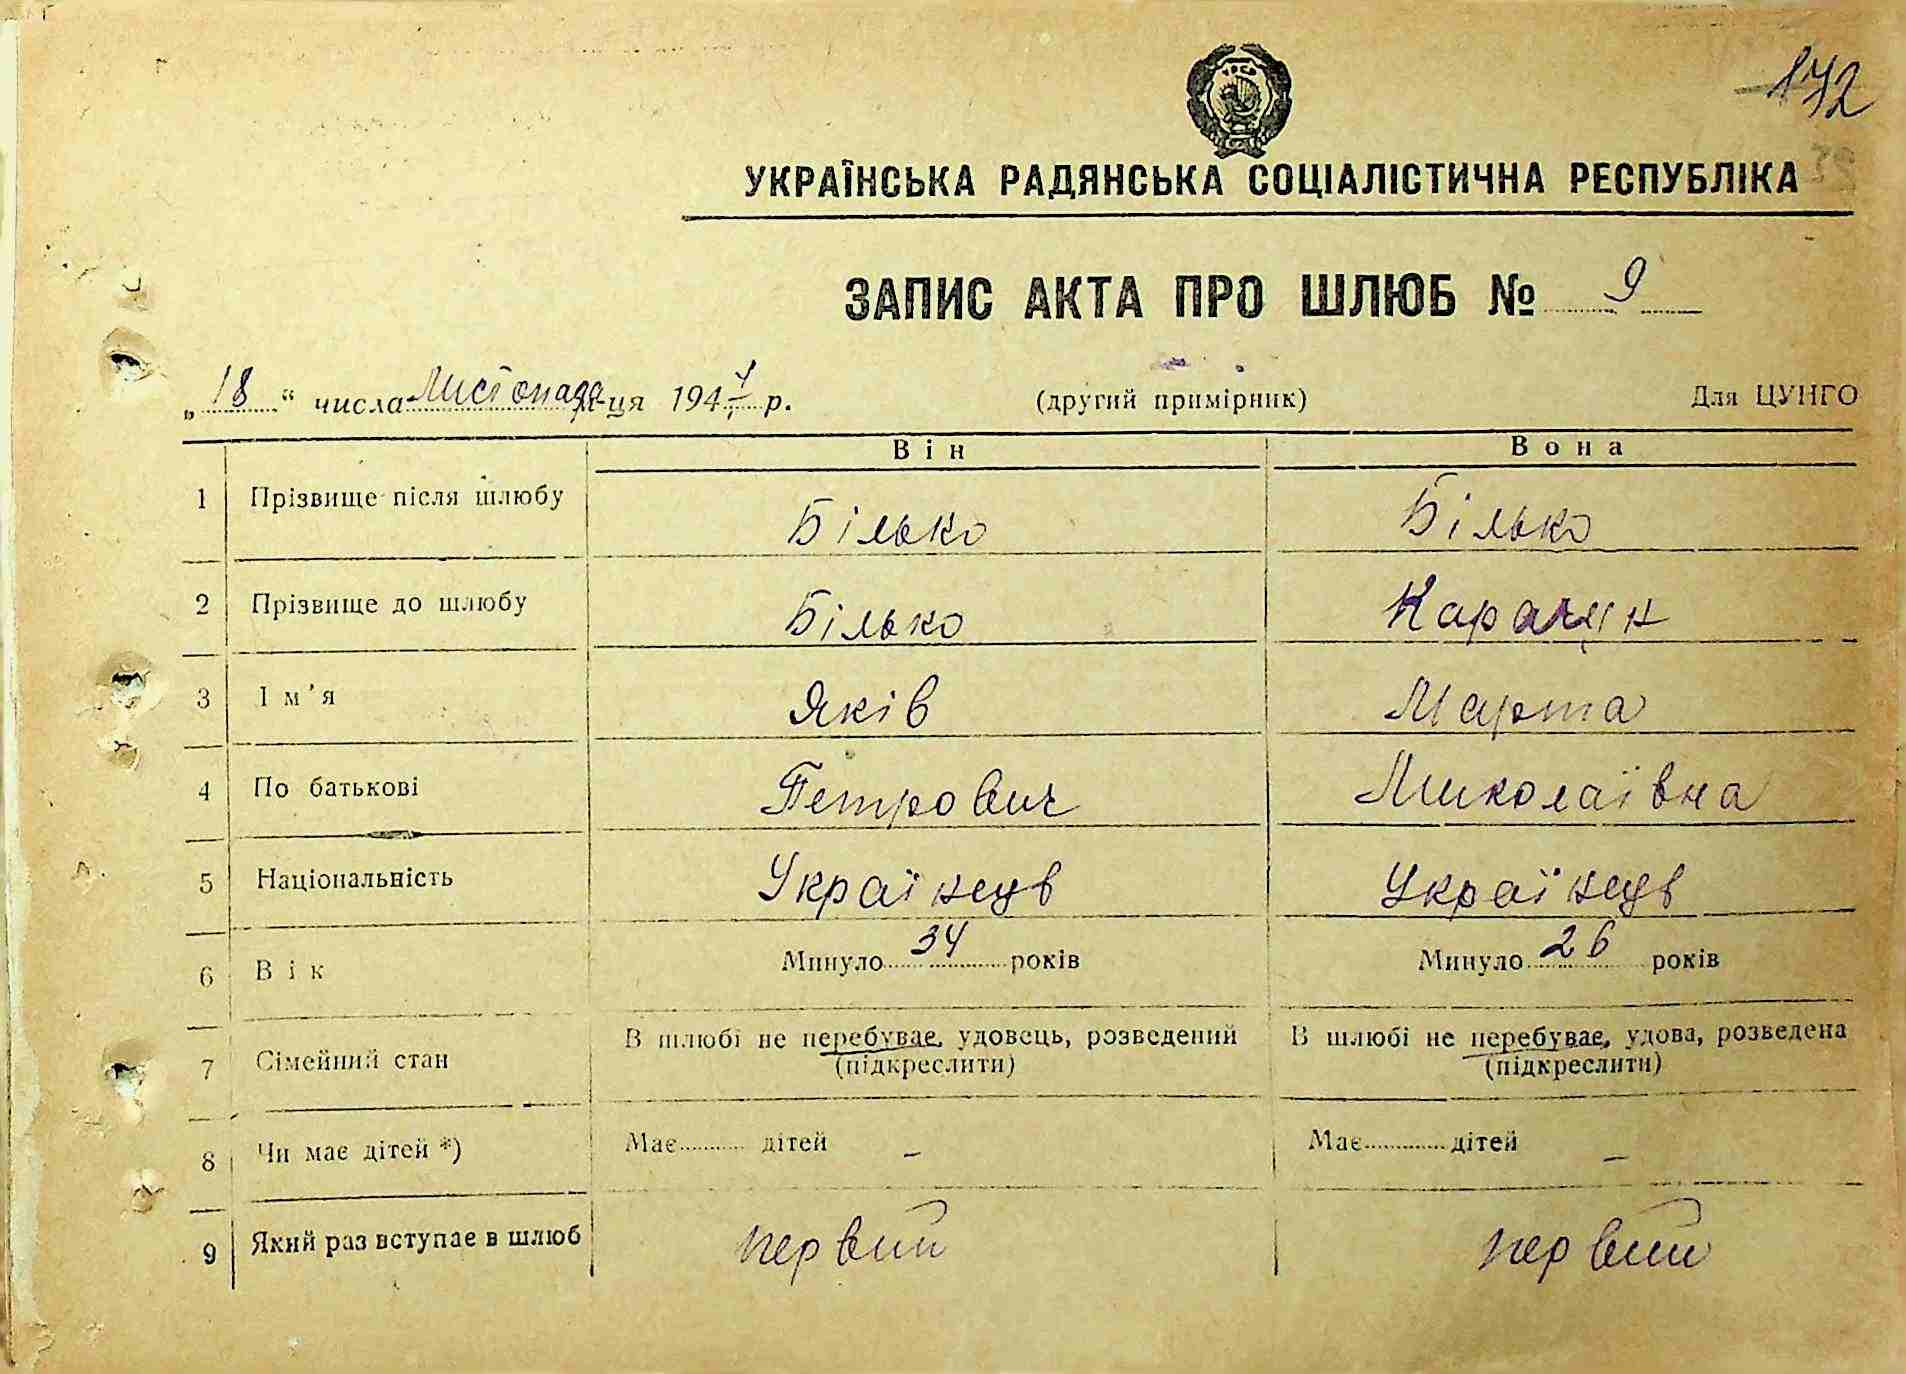 172
УКРАЇНСЬКА РАДЯНСЬКА СОЦІАЛІСТИЧНА РЕСПУБЛІКА
ЗАПИС АКТА ПРО ШЛЮБ № 9
„18“ числа Листопада м-ця 1947 р. (другий примірник) Для ЦУНГО
Він Вона
1 Прізвище після шлюбу Білько Білько
2 Прізвище до шлюбу Білько
3 Ім'я Яків Марта
4 По батькові Петрович Миколаївна
5 Національність
6 Вік Минуло 34 років Минуло 26 років
7 Сімейний стан В шлюбі не перебуває, удовець, розведений В шлюбі не перебуває, удова, розведена
(підкреслити) (підкреслити)
8 Чи має дітей *) Має дітей – Має дітей –
9 Який раз вступає в шлюб первий первий